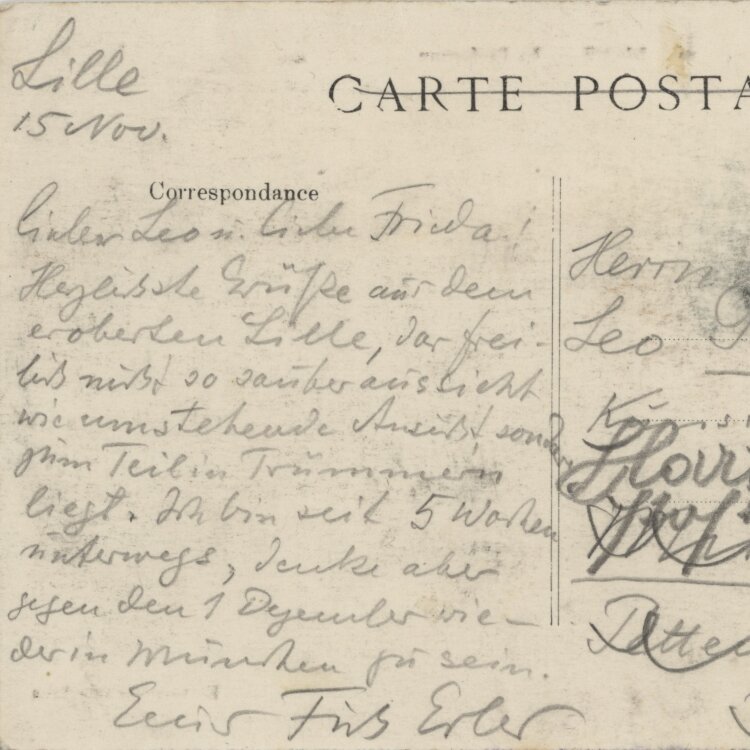 Lille
15 Nov.
CARTE POSTA
Correspondance
Lieber Leo u. liebe Frieda!
Herzlichste Grüße aus dem
eroberten Lille, das frei-
lich nicht so sauber aussieht
wie umstehende Ansicht sondern
zum Teil in Trümmern
liegt. Ich bin seit 5 Wochen
unterwegs, denke aber
gegen den 1 Dezember wie-
der in München zu sein.
Euer Fritz Erler
Herrn
Leo